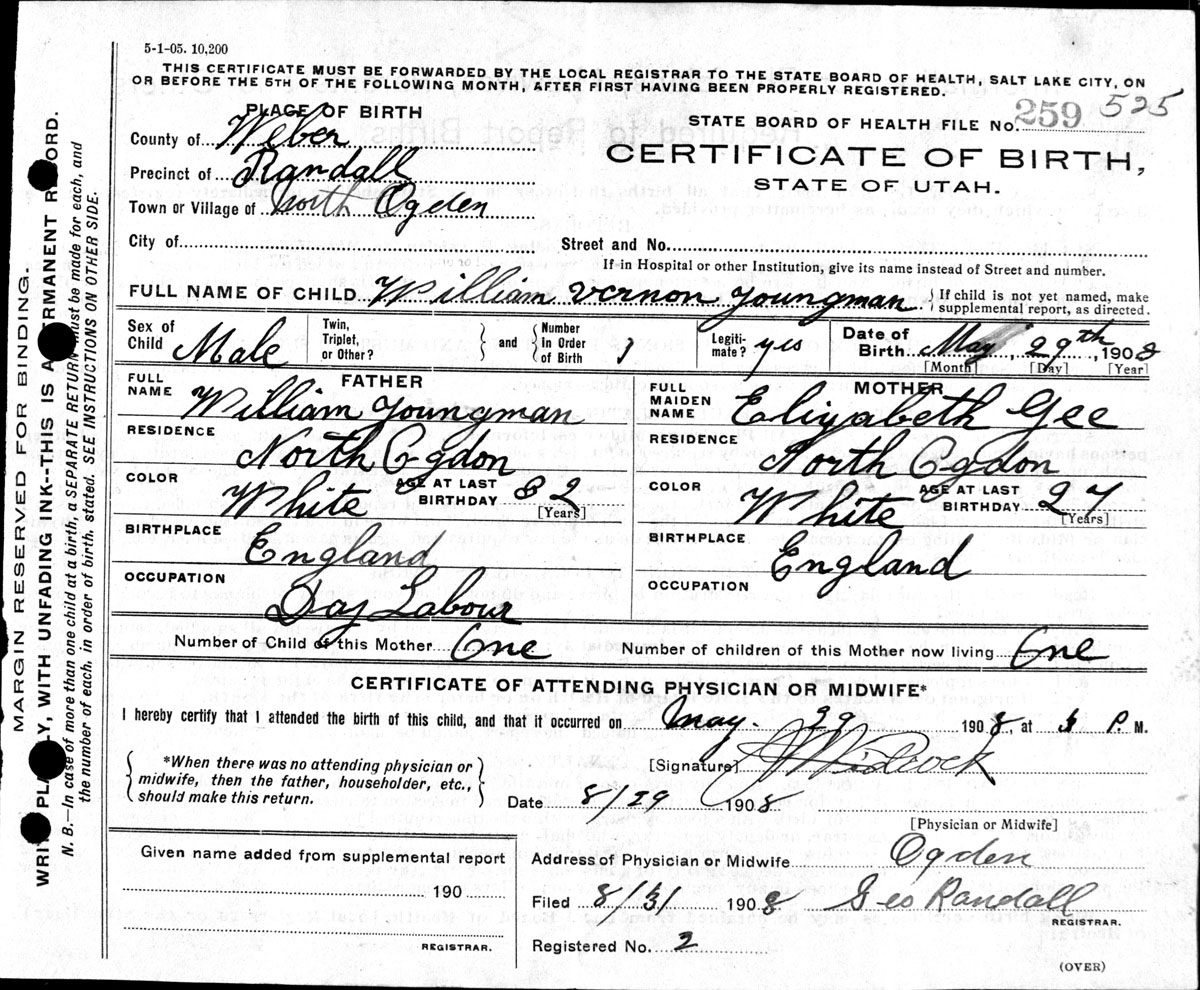 5-1-05. 10,200
THIS CERTIFICATE MUST BE FORWARDED BY THE LOCAL REGISTRAR TO THE STATE BOARD OF HEALTH, SALT LAKE CITY, ON
OR BEFORE THE 5TH OF THE FOLLOWING MONTH, AFTER FIRST HAVING BEEN PROPERLY REGISTERED.
PLACE OF BIRTH
STATE BOARD OF HEALTH FILE No. 259 525
County of Weber
CERTIFICATE OF BIRTH,
Precinct of Randall
STATE OF UTAH.
Town or Village of North Ogden
City of Street and No.
If in Hospital or other Institution, give its name instead of Street and number.
FULL NAME OF CHILD William Vernon Youngman { If child is not yet named, make supplemental report, as directed.
Sex of Child Male Twin, Triplet, or Other? { } and { Number In Order of Birth 1 Legitimate? yes Date of Birth May, 29th, 1908
[Month] [Day] [Year]
FATHER
FULL NAME William Youngman
RESIDENCE North Ogdon
COLOR White AGE AT LAST BIRTHDAY 32 [Years]
BIRTHPLACE England
OCCUPATION Day Labour
MOTHER
FULL MAIDEN NAME Elizabeth Gee
RESIDENCE North Ogdon
COLOR White AGE AT LAST BIRTHDAY 27 [Years]
BIRTHPLACE England
OCCUPATION
Number of Child of this Mother One Number of children of this Mother now living One
CERTIFICATE OF ATTENDING PHYSICIAN OR MIDWIFE*
I hereby certify that I attended the birth of this child, and that it occurred on May 29 1908, at P. M.
{ *When there was no attending physician or midwife, then the father, householder, etc., should make this return. }
[Signature]
Date 8/29 1908
[Physician or Midwife]
Given name added from supplemental report
190
REGISTRAR.
Address of Physician or Midwife Ogden
Filed 8/31 1908 Geo Randall
REGISTRAR.
Registered No. 2
(OVER)
MARGIN RESERVED FOR BINDING.
WRITE PLAINLY, WITH UNFADING INK--THIS IS A PERMANENT RECORD.
N. B.—In case of more than one child at a birth, a SEPARATE RETURN must be made for each, and
the number of each, in order of birth, stated. SEE INSTRUCTIONS ON OTHER SIDE.